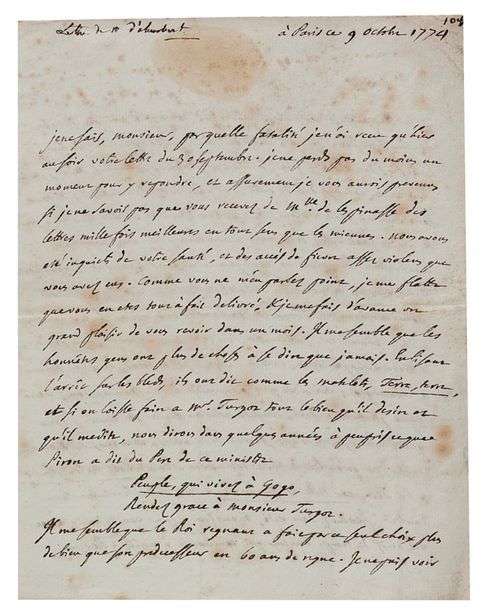 108
Lettre de M d'Alembert
à Paris ce 9 Octobre 1774
je ne sais, monsieur, par quelle fatalité je n'ai reçu qu'hier
au soir votre lettre du 30 septembre. je ne perds pas du moins un
moment pour y repondre, et assurement je vous aurois prevenu
si je ne savois pas que vous recevez de Mlle de lespinasse des
lettres mille fois meilleures en tout sens que les miennes. nous avons
eté inquiets de votre santé, et des accès de fievre assez violens que
vous avez eus. Comme vous ne m'en parlez point, je me flatte
que vous en etes tout à fait delivré, & je me fais d'avance un
grand plaisir de vous revoir dans un mois. Il me semble que les
honnêtes gens ont plus de choses à se dire que jamais. En lisant
l'arrêt sur les bleds, ils ont dit comme les matelots, Terre, terre,
et si on laisse faire à Mr. Turgot tout le bien qu'il desire et
qu'il medite, nous dirons dans quelques années à peu près ce que
Piron a dit du Pere de ce ministre
Peuple, qui vivez à Gogo,
Rendez grace à monsieur Turgot.
Il me semble que le Roi regnant a fait par ce seul choix plus
de bien que son predecesseur en 60 ans de regne. Je ne puis voir